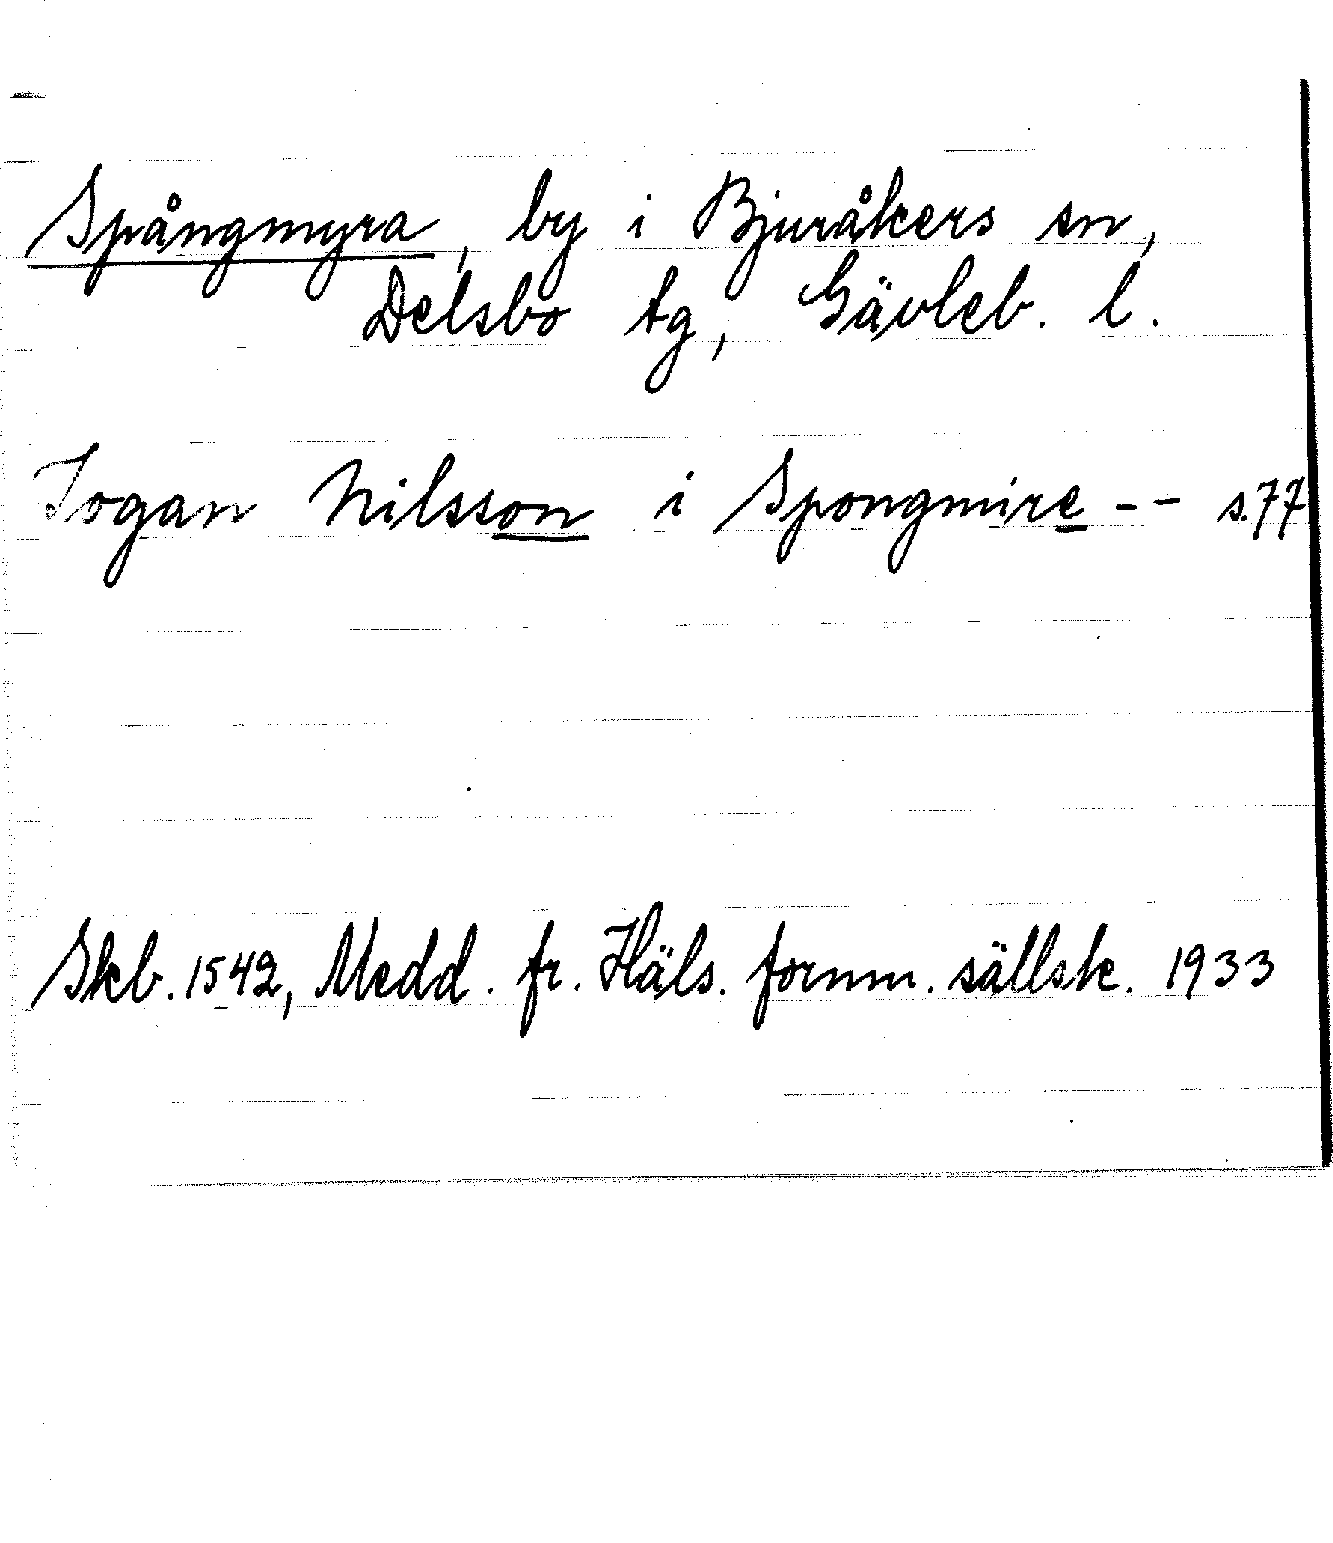 Spångmyra, by i Bjuråkers sn,
Delsbo tg, Gävleb. l.
Jogan Nilsson i Spongmire -- s.77
Skb. 1542, Medd. fr. Häls. fornm. sällsk. 1933